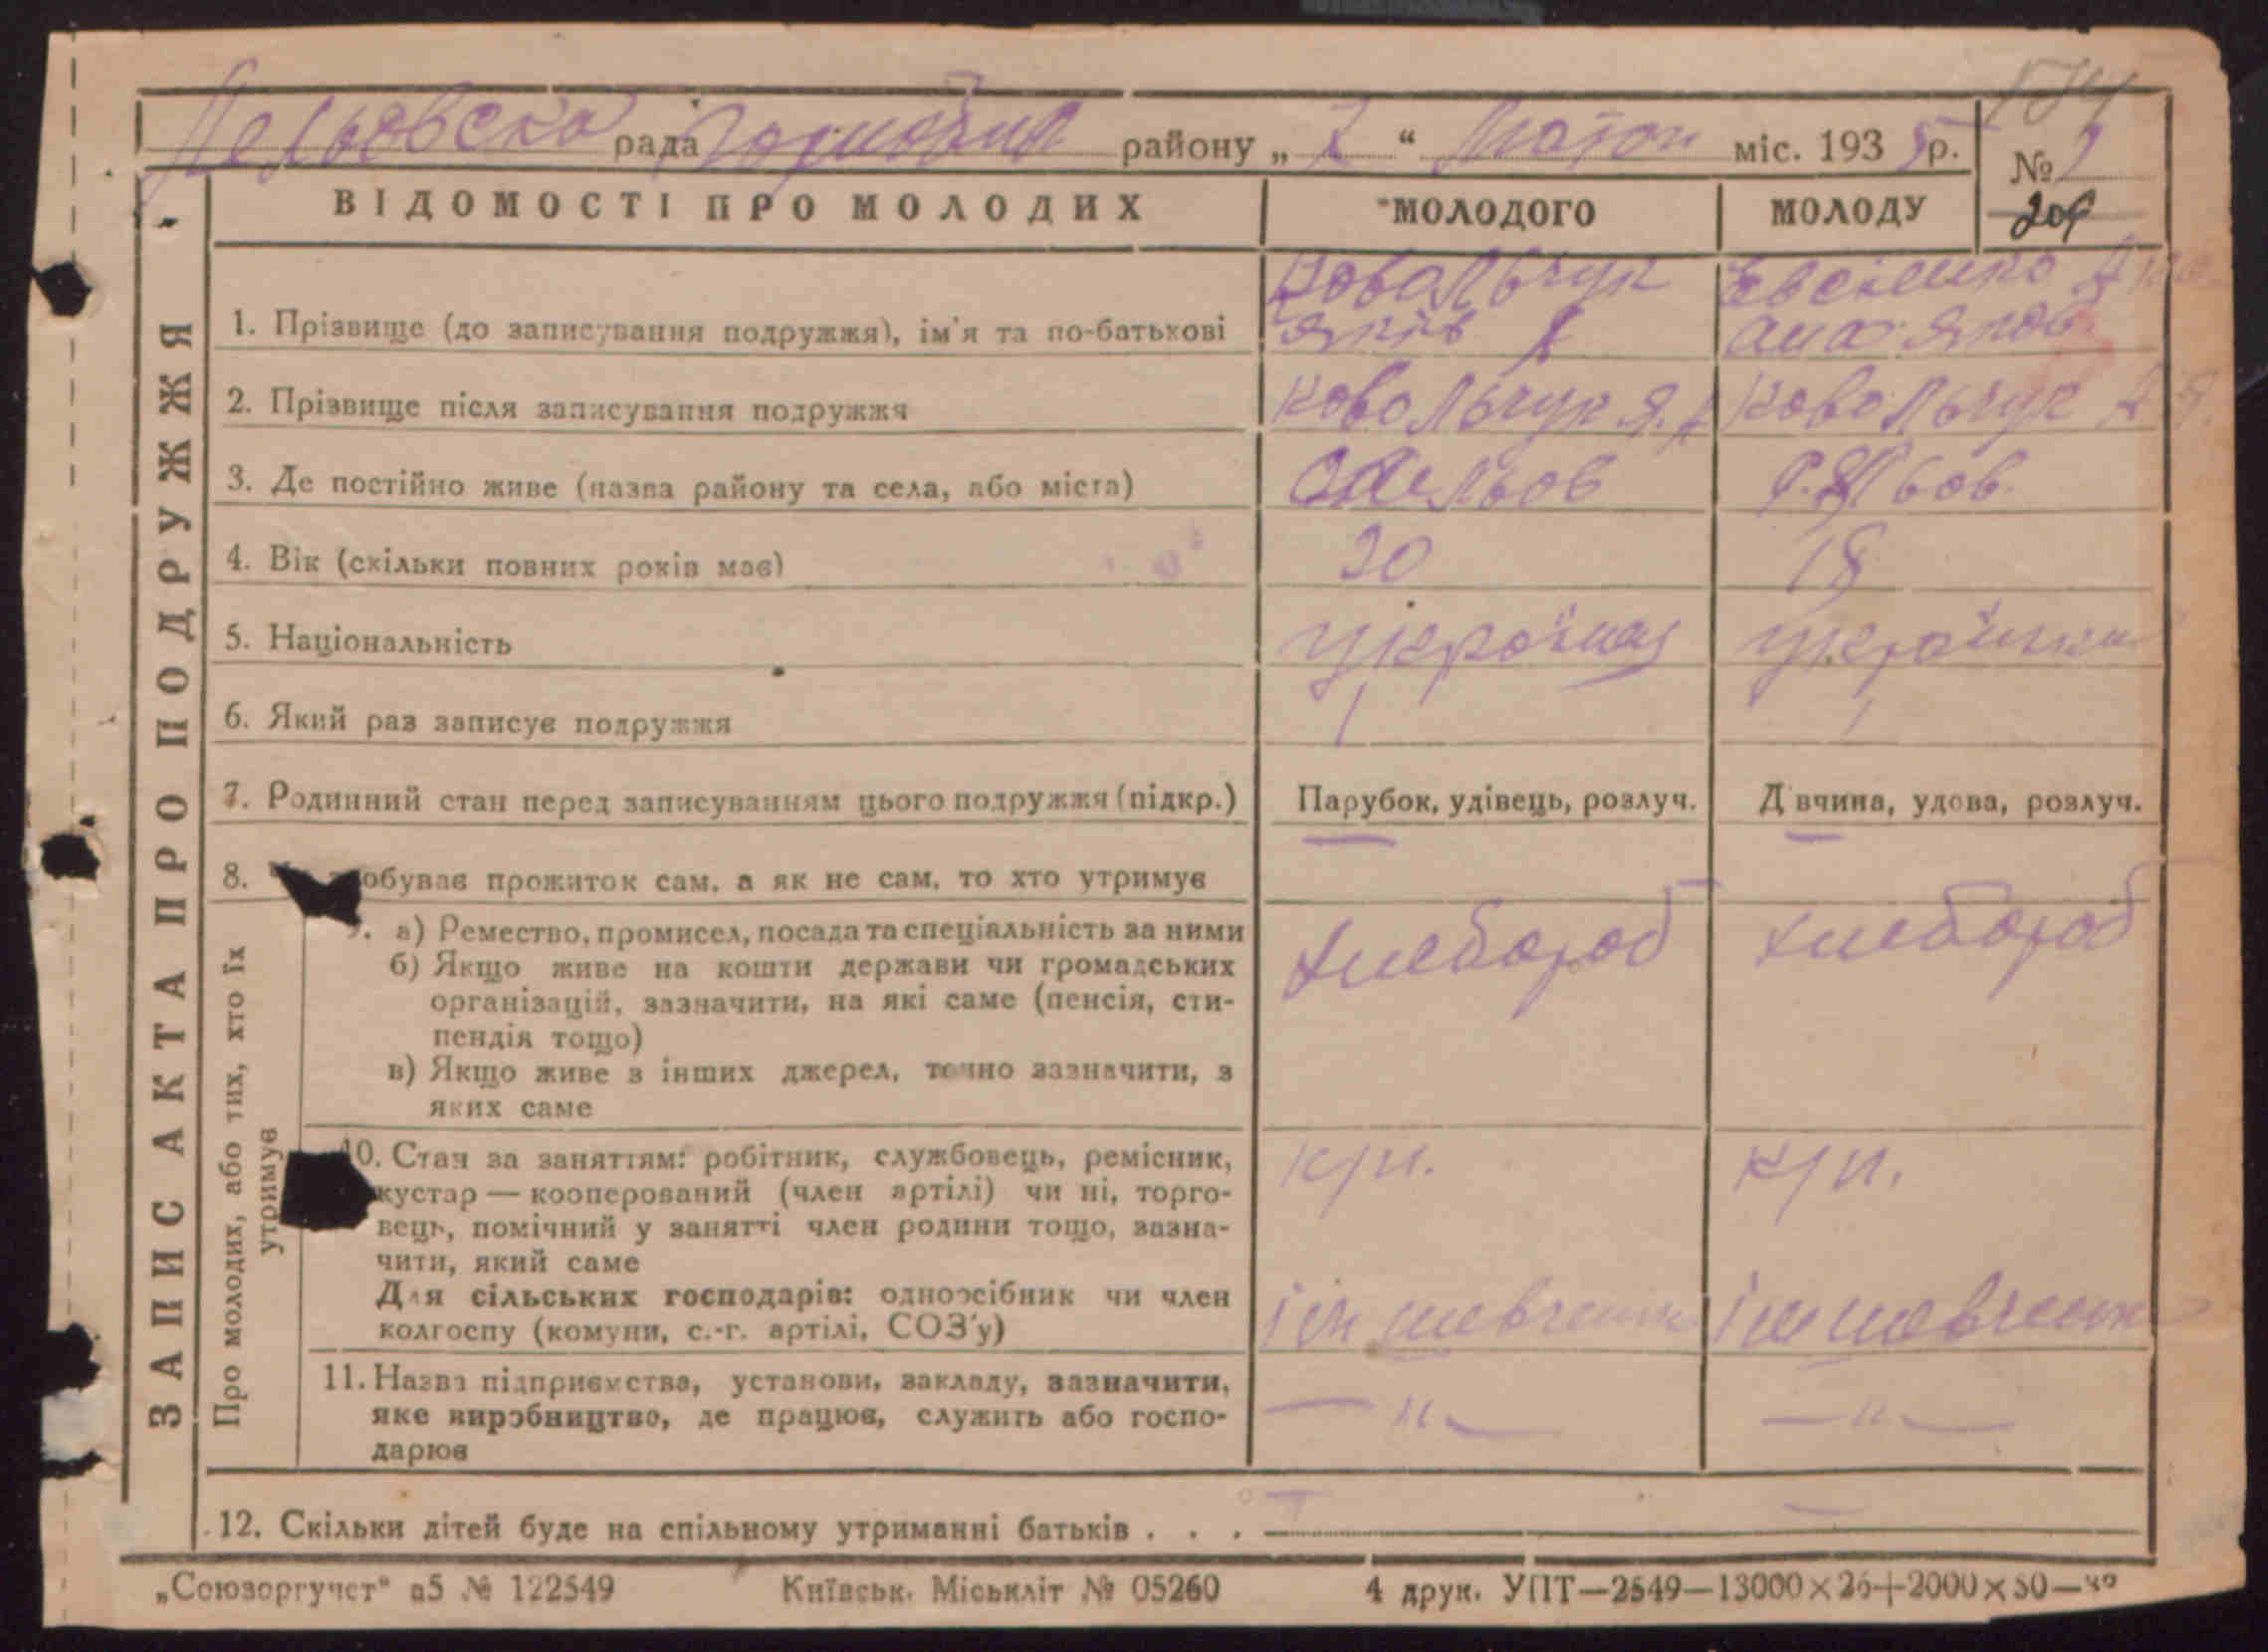 рада району „ 2 “ міс. 1935 р.
№ 9
209
ВІДОМОСТІ ПРО МОЛОДИХ МОЛОДОГО МОЛОДУ
ЗАПИС АКТА ПРО ПОДРУЖЖЯ
Ковольчук
1. Прізвище (до записування подружжя), ім'я та по-батькові Яків
2. Прізвище після записування подружжя Ковольчук Я. Ковольчук А Я.
3. Де постійно живе (назва району та села, або міста)
4. Вік (скільки повних років має) 20 18
5. Національність україниц українка
6. Який раз записує подружжя 1 1
7. Родинний стан перед записуванням цього подружжя (підкр.) Парубок, удівець, розлуч. Дівчина, удова, розлуч.
8. добував прожиток сам, а як не сам, то хто утримує
Про молодих, або тих, хто їх утримує
9. а) Ремество, промисел, посада та спеціальність за ними хлебороб хлебороб
б) Якщо живе на кошти держави чи громадських
організацій, зазначити, на які саме (пенсія, сти-
пендія тощо)
в) Якщо живе з інших джерел, точно зазначити, з
яких саме
10. Стан за заняттям: робітник, службовець, ремісник, к/г. к/г.
кустар — кооперований (член артілі) чи ні, торго-
вець, помічний у занятті член родини тощо, зазна-
чити, який саме
Для сільських господарів: одноосібник чи член
колгоспу (комуни, с.-г. артілі, СОЗ'у)
11. Назва підприємства, установи, закладу, зазначити,
яке виробництво, де працює, служить або госпо- — „ — — „ —
дарює
12. Скільки дітей буде на спільному утриманні батьків . . .
„Союзоргучет“ а5 № 122549 Київськ. Міськліт № 05260 4 друк. УПТ—2549—13000×26+2000×50—